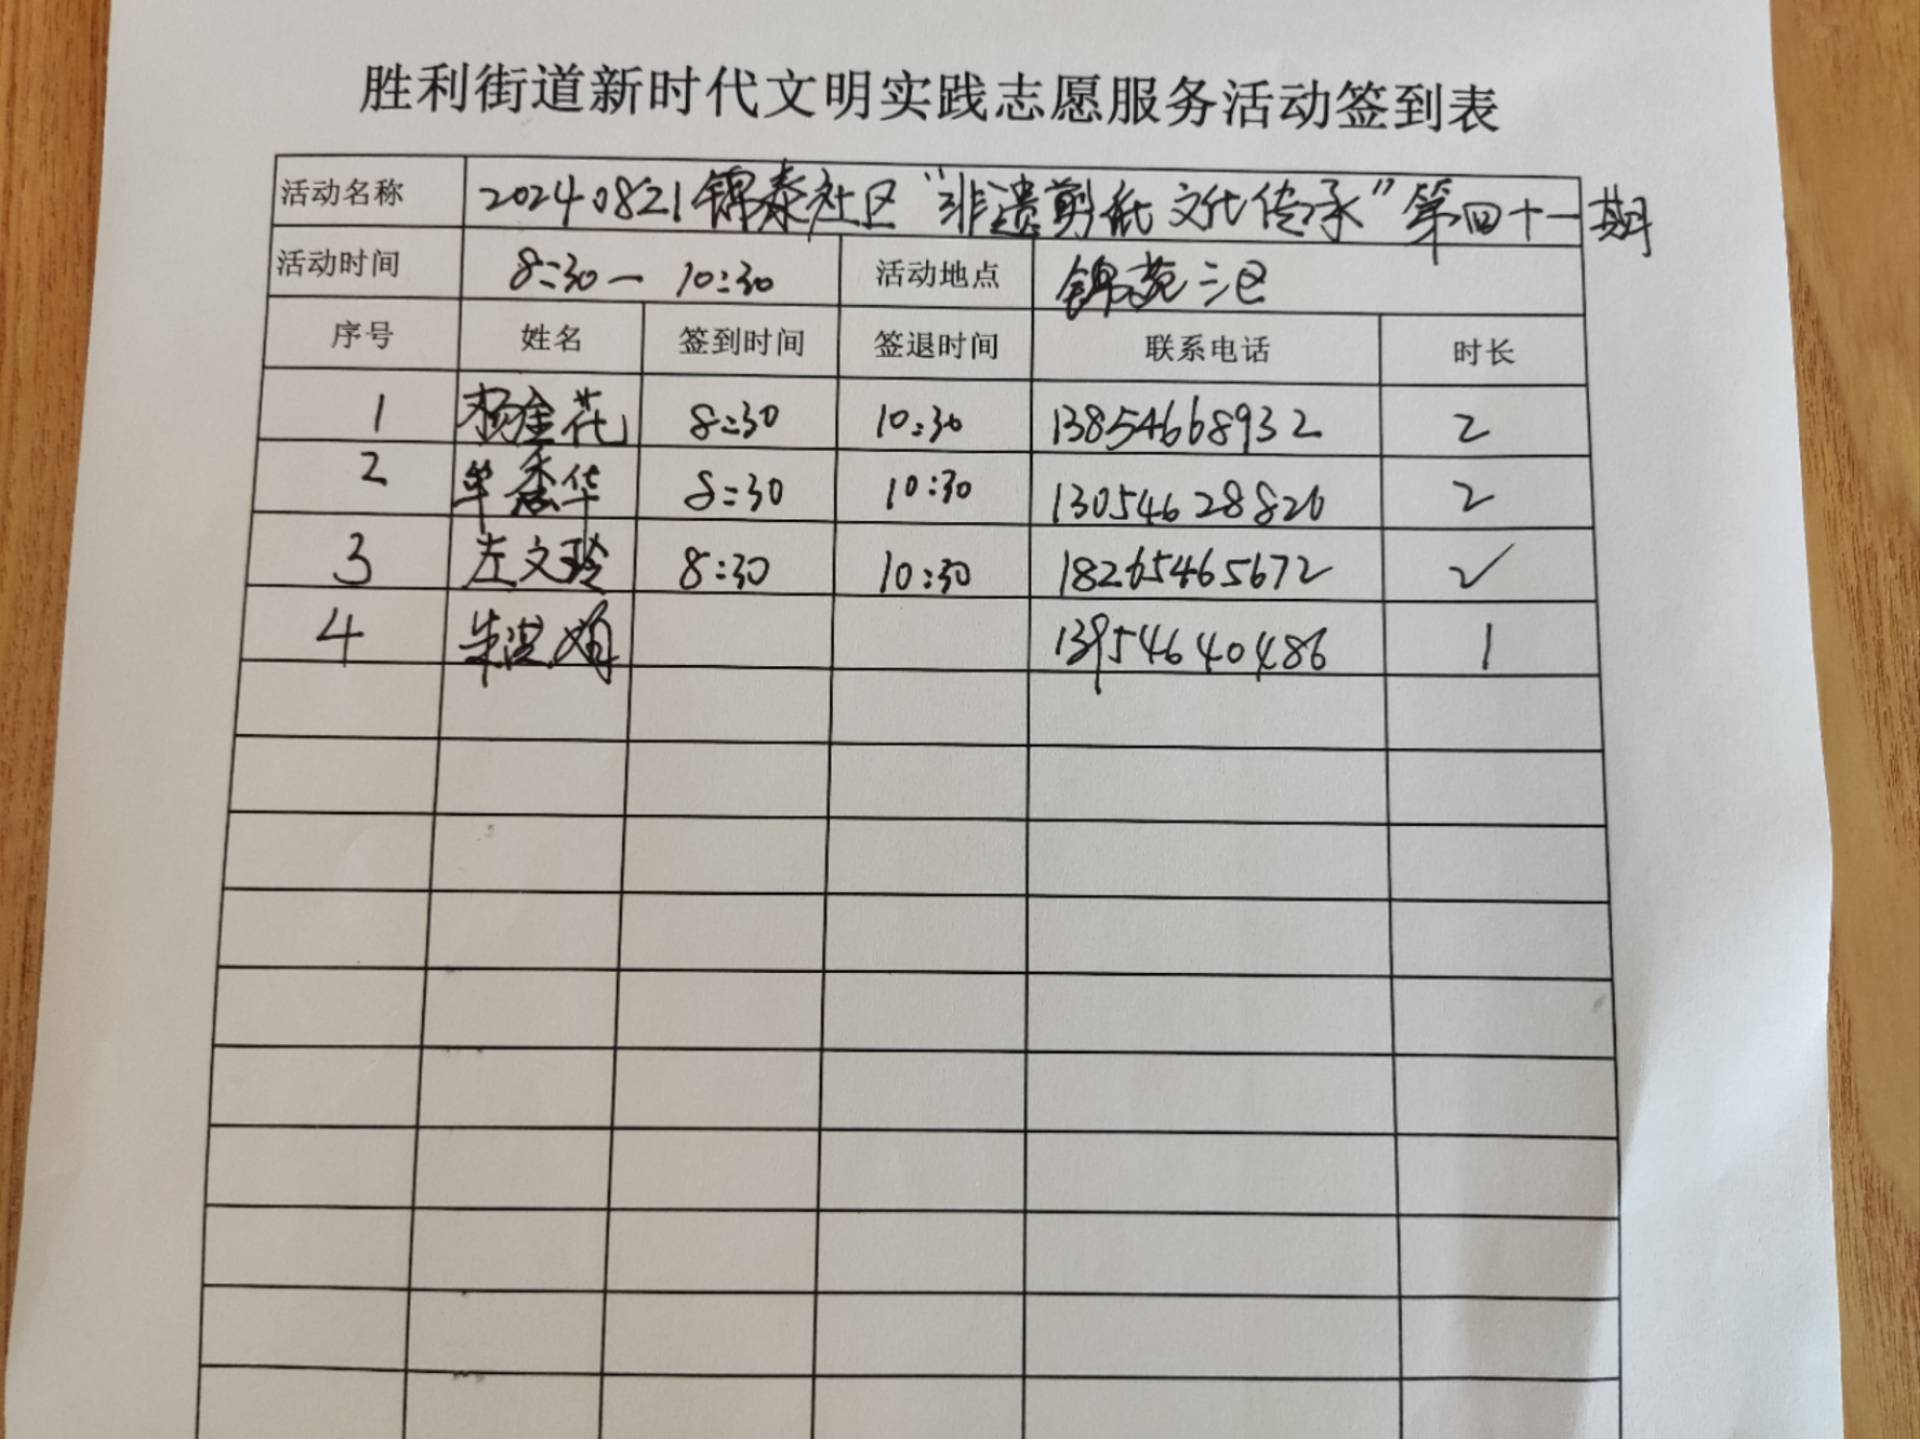 胜利街道新时代文明实践志愿服务活动签到表
活动名称 20240821锦泰社区“非遗剪纸 文化传承”第四十一期
活动时间 8:30一10:30 活动地点 锦苑二区
序号 姓名 签到时间 签退时间 联系电话 时长
1 杨金花 8:30 10:30 13854668932 2
2 单秀华 8:30 10:30 13054628820 2
3 左文玲 8:30 10:30 18265465672 2
4 朱 娟 13954640486 1